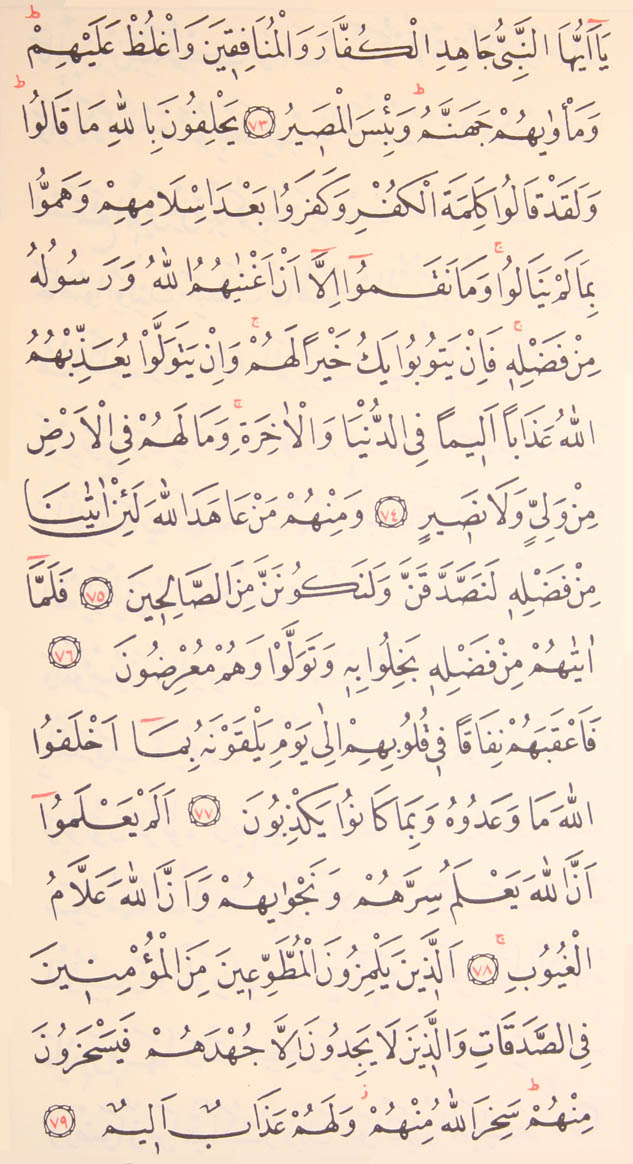 يَآ اَيُّهَا النَّبِيُّ جَاهِدِ الْكُفَّارَ وَالْمُنَافِقٖينَ وَاغْلُظْ عَلَيْهِمْ ط
وَمَأْوٰيهُمْ جَهَنَّمُ ط وَبِئْسَ الْمَصٖيرُ ﴿٧٣﴾ يَحْلِفُونَ بِاللّٰهِ مَا قَالُوا ط
وَلَقَدْ قَالُوا كَلِمَةَ الْكُفْرِ وَكَفَرُوا بَعْدَ اِسْلَامِهِمْ وَهَمُّوا
بِمَا لَمْ يَنَالُوا ج وَمَا نَقَمُوٓا اِلَّآ اَنْ اَغْنٰيهُمُ اللّٰهُ وَرَسُولُهُ
مِنْ فَضْلِهٖ ج فَاِنْ يَتُوبُوا يَكُ خَيْراً لَهُمْ ج وَاِنْ يَتَوَلَّوْا يُعَذِّبْهُمُ
اللّٰهُ عَذَاباً اَلٖيماً فِي الدُّنْيَا وَالْاٰخِرَةِ ج وَمَا لَهُمْ فِي الْاَرْضِ
مِنْ وَلِيٍّ وَلَا نَصٖيرٍ ﴿٧٤﴾ وَمِنْهُمْ مَنْ عَاهَدَ اللّٰهَ لَئِنْ اٰتٰينَا
مِنْ فَضْلِهٖ لَنَصَّدَّقَنَّ وَلَنَكُونَنَّ مِنَ الصَّالِحٖينَ ﴿٧٥﴾ فَلَمَّآ
اٰتٰيهُمْ مِنْ فَضْلِهٖ بَخِلُوا بِهٖ وَتَوَلَّوْا وَهُمْ مُعْرِضُونَ ﴿٧٦﴾
فَاَعْقَبَهُمْ نِفَاقاً فٖي قُلُوبِهِمْ اِلٰى يَوْمِ يَلْقَوْنَهُ بِمَآ اَخْلَفُوا
اللّٰهَ مَا وَعَدُوهُ وَبِمَا كَانُوا يَكْذِبُونَ ﴿٧٧﴾ اَلَمْ يَعْلَمُوٓا
اَنَّ اللّٰهَ يَعْلَمُ سِرَّهُمْ وَنَجْوٰيهُمْ وَاَنَّ اللّٰهَ عَلَّامُ
الْغُيُوبِ ج ﴿٧٨﴾ اَلَّذٖينَ يَلْمِزُونَ الْمُطَّوِّعٖينَ مِنَ الْمُؤْمِنٖينَ
فِي الصَّدَقَاتِ وَالَّذٖينَ لَا يَجِدُونَ اِلَّا جُهْدَهُمْ فَيَسْخَرُونَ
مِنْهُمْ ط سَخِرَ اللّٰهُ مِنْهُمْ ز وَلَهُمْ عَذَابٌ اَلٖيمٌ ﴿٧٩﴾